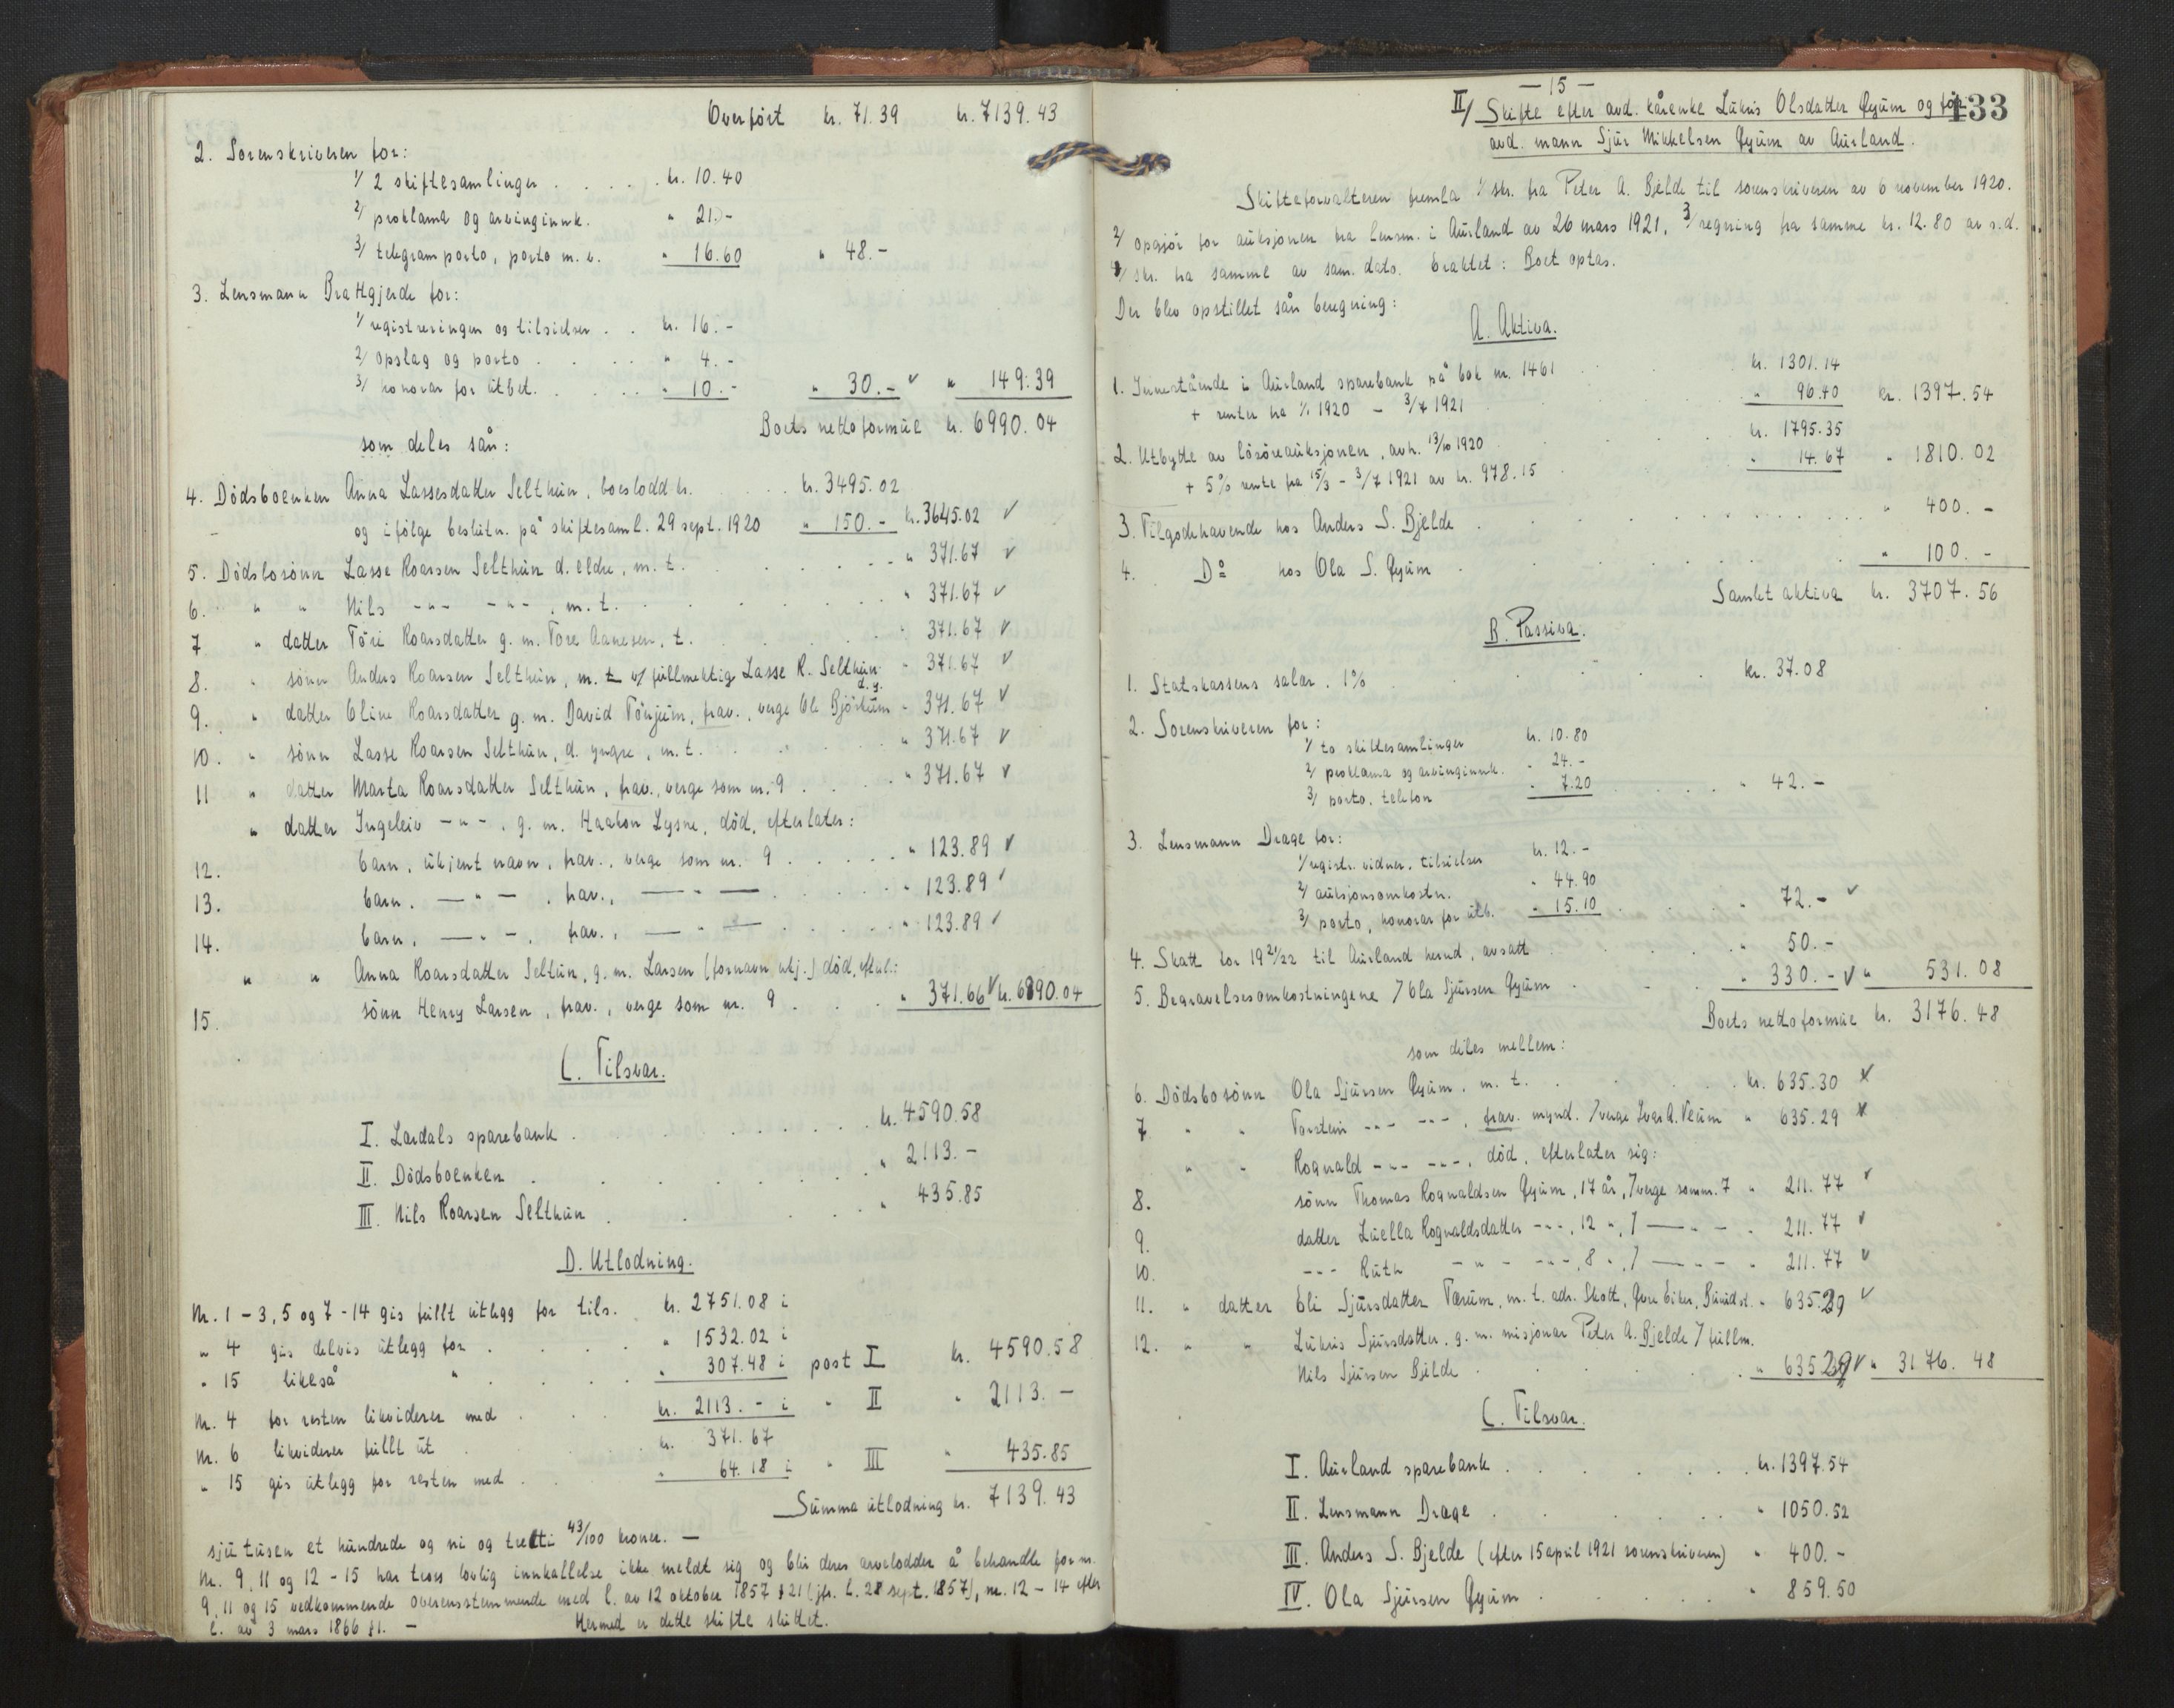 Overført kr. 71.39 kr. 7139.43
2. Sorenskriveren for:
1/ 2 skiftesamlinger . . . . . kr. 10.40
2/ proklama og arvinginnk. " 21.-
3/ telegramporto, porto m. v. " 16.60 " 48.-
3. Lensmann Brattgjerde for:
1/ registreringen og tilsielser . . kr. 16.-
2/ opslag og porto . . . . " 4.-
3/ honorar for utbet. . . . . " 10.- " 30.- ✓ " 149.39
Boets nettoformue kr. 6990.04
som deles sån:
4. Dödsboenken Anna Lassesdatter Selthun, boeslodd kr. . . . kr. 3495.02
og ifölge beslutn. på skiftesaml. 29 sept. 1920 " 150.- kr. 3645.02 ✓
5. Dödsbosönn Lasse Roarsen Selthun d. eldre, m. t. . . . . " 371.67 ✓
6. " " Nils -"- -"-, m. t. . . . . " 371.67 ✓
7 " datter Töri Roarsdatter g. m. Tore Aanesen, t. . . . " 371.67 ✓
8. " sönn Anders Roarsen Selthun, m. t. v/ fullmektig Lasse R. Selthun d. y. " 371.67 ✓
9. " datter Oline Roarsdatter g. m. David Tönjum, frav., verge Ole Björkum " 371.67 ✓
10. " sönn Lasse Roarsen Selthun, d. yngre, m. t. . . . " 371.67 ✓
11 " datter Marta Roarsdatter Selthun, frav., verge som nr. 9 . . . " 371.67 ✓
" datter Ingeleiv -"-, g. m. Haakon Lysne, död, efterlater:
12. barn, ukjent navn, frav., verge som nr. 9 . . . . " 123.89 ✓
13. barn, — " —, frav., — " — . . . . " 123.89 ✓
14. barn, — " —, frav., — " — . . . . " 123.89 ✓
" " Anna Roarsdatter Seltun, g. m. Larsen (fornavn ukj.) död, efterl.:
15. sönn Henry Larsen, frav., verge som nr. 9 . . . " 371.66 ✓ kr. 6990.04
C. Tilsvar.
I. Lærdals sparebank . . . . . . kr. 4590.58
II. Dödsboenken . . . . . . " 2113.-
III. Nils Roarsen Selthun . . . . . " 435.85
D. Utlodning.
Nr. 1 - 3, 5 og 7 - 14 gis fullt utlegg for tils. kr. 2751.08 i
" 4 gis delvis utlegg for . . . . " 1532.02 i
" 15 likeså " . . . . " 307.48 i post I kr. 4590.58
Nr. 4 for resten likviderer med . . . kr. 2113.- i " II " 2113.-
Nr. 6 likviderer fullt ut . . . kr. 371.67
" 15 gis utlegg for resten med . . . " 64.18 i " III " 435.85
Summa utlodning kr. 7139.43
sju tusen et hundrede og ni og tretti 43/100 kroner. —
Nr. 9, 11 og 12 - 15 har tross lovlig innkallelse ikke meldt sig og blir deres arvelodder å behandle for nr.
9, 11 og 15 vedkommende overensstemmende med l. av 12 oktober 1857 § 21 (jfr. l. 28 sept. 1857), nr. 12 - 14 efter
l. av 3 mars 1866 § 1. — Hermed er dette skifte sluttet.
— 15 —
133
II/ Skifte efter avd. kårenke Lukris Olsdatter Gyum og för
avd. mann Sjur Mikkelsen Gyum av Aurland.
Skifteforvalteren fremla 1/ skr. fra Peter A. Bjelde til sorenskriveren av 6 november 1920.
2/ opgjör for auksjonen fra lensm. i Aurland av 26 mars 1921, 3/ regning fra samme kr. 12.80 av s.d.
4/ skr. fra samme av sam. dato. Eraktet: Boet optas.
Der blev opstillet sån beregning:
A. Aktiva.
1. Innestående i Aurland sparebank på bok nr. 1461 . . kr. 1301.14
+ renter fra 1/1 1920 - 3/7 1921 . . . " 96.40 kr. 1397.54
2. Utbytte av lösöreauksjonen, avh. 13/10 1920 . . . kr. 1795.35
+ 5% rente fra 15/3 - 3/7 1921 av kr. 978.15 . . . " 14.67 " 1810.02
3. Tilgodehavende hos Anders S. Bjelde . . . . . " 400.-
4. Do hos Ola S. Gyum . . . . . " 100.-
Samlet aktiva kr. 3707.56
B. Passiva.
1. Statskassens salær. 1% . . . . . kr. 37.08
2. Sorenskriveren for:
1/ to skiftesamlinger kr. 10.80
2/ proklama og arvinginnk. " 24.-
3/ porto, telefon " 7.20 . . . " 42.-
3. Lensmann Drage for:
1/ registr. vidner, tilsielser kr. 12.-
2/ auksjonsomkostn. " 44.90
3/ porto, honorar for utb. " 15.10 . . . " 72.- ✓
4. Skatt for 1921/22 til Aurland herred, avsatt . . . " 50.-
5. Begravelsesomkostningene / Ola Sjursen Gyum . . . " 330.- ✓ " 531.08
Boets nettoformue kr. 3176.48
som deles mellem:
6. Dödsbosönn Ola Sjursen Gyum, m. t. . . . . kr. 635.30 ✓
7 " " Torstein -"- -"-, frav. mynd. / verge Ivar A. Veum " 635.29 ✓
" " Rognald -"- -"-, död, efterlater sig:
8. sönn Thomas Rognaldsen Gyum, 17 år, / verge som nr. 7 " 211.77 ✓
9. datter Luella Rognaldsdatter -"-, 12 ", / — " — " 211.77 ✓
10. -"- Ruth -"- -"-, 8 ", / — " — " 211.77 ✓
11. " datter Eli Sjursdatter Tærum, m. t. adr. Skott, Övre Eiker, Buskud st. " 635.29 ✓
12. " " Lukris Sjursdatter, g. m. misjonær Peter A. Bjelde / fullm.
Nils Sjursen Bjelde . . . . " 635.29 ✓ " 3176.48
C. Tilsvar.
I. Aurland sparebank . . . . . . kr. 1397.54
II. Lensmann Drage . . . . . . " 1050.52
III. Anders S. Bjelde (efter 15 april 1921 sorenskriveren) " 400.-
IV. Ola Sjursen Gyum . . . . . " 859.50